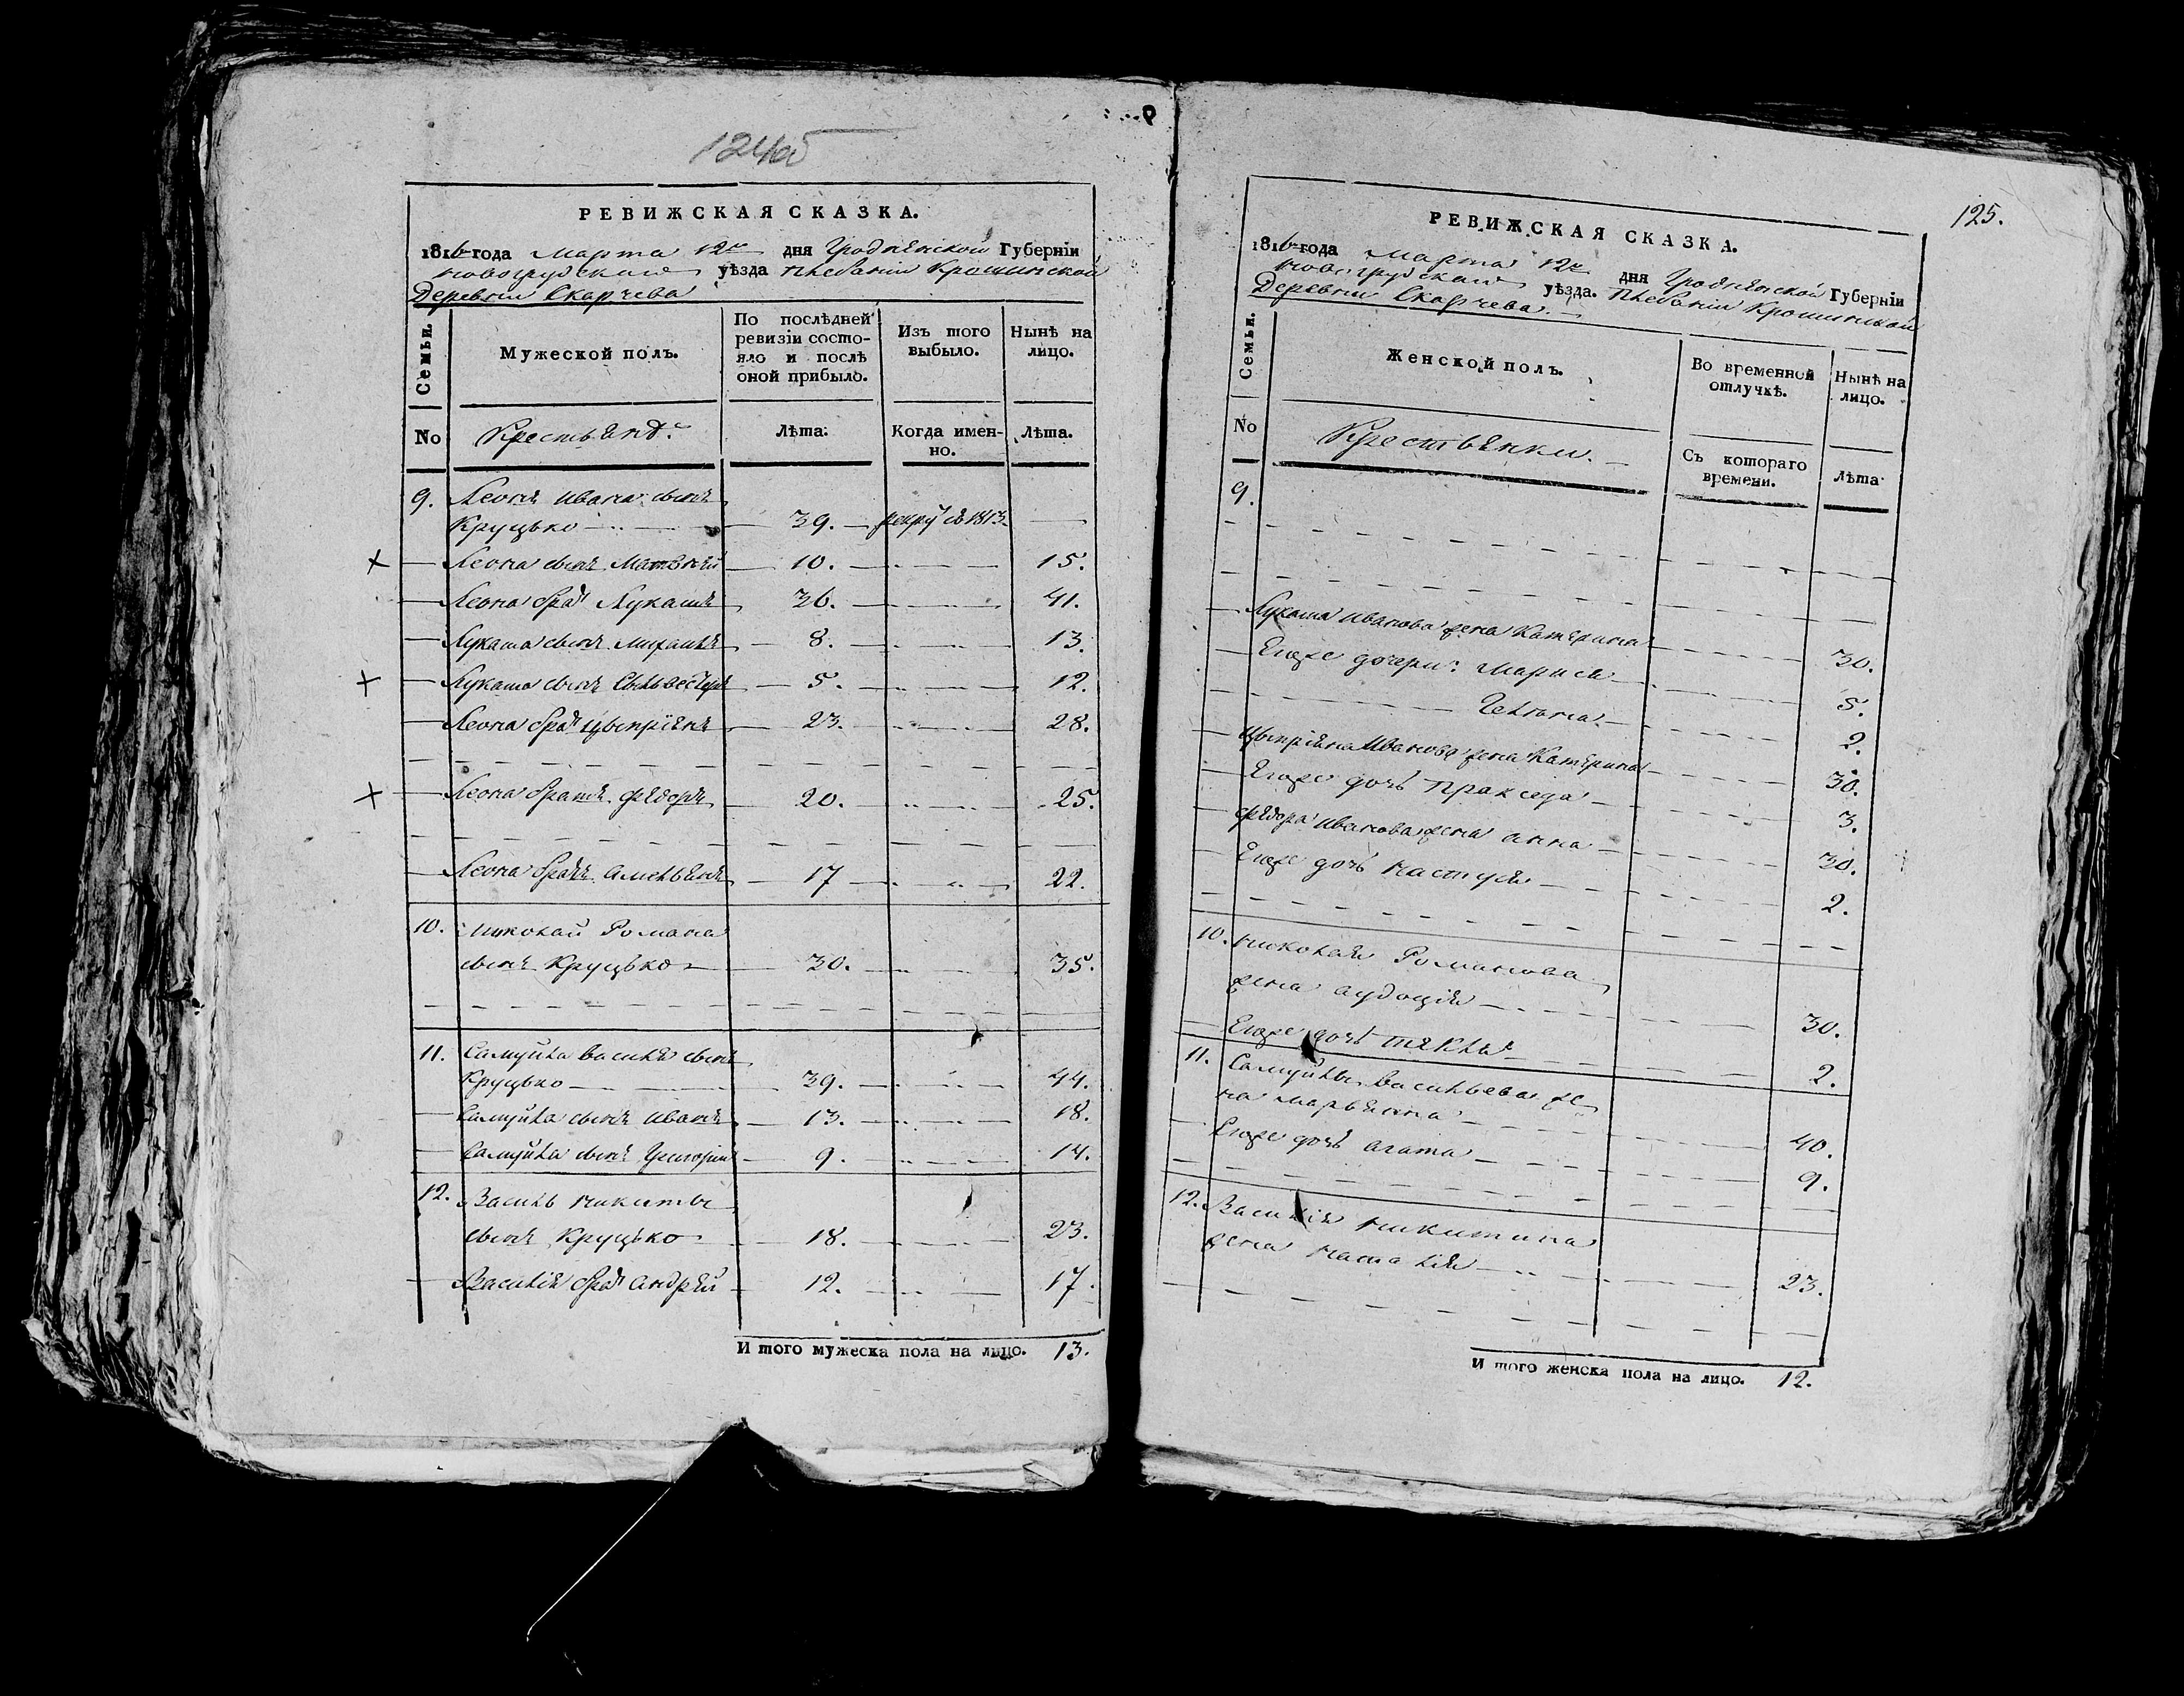 124об
РЕВИЖСКАЯ СКАЗКА.
1816го года Марта 12го дня Гродненской Губерніи
Новогрудскаго уѣзда Плебаніи Крошинской
Деревни Скарчева
Семьи.
Мужеской полъ.
По послѣдней ревизіи состояло и послѣ оной прибыло.
Изъ того выбыло.
Нынѣ на лицо.
No
Крестьянѣ.
Лѣта.
Когда именно.
Лѣта.
9. Леонъ Ивана сынъ
Круцько 39. рекру въ 1813
Леона сынъ Матвѣй 10. 15.
Леона братъ Лукашъ 36. 41.
Лукаша сынъ Михаилъ 8. 13.
Лукаша сынъ Сильвестеръ 5. 12.
Леона братъ Цыпріянъ 23. 28.
Леона братъ Ѳедоръ 20. 25.
Леона братъ Амельянъ 17 22.
10. Николай Романа
сынъ Круцько 30. 35.
11. Самуйла Василя сынъ
Круцько 39. 44.
Самуйла сынъ Иванъ 13. 18.
Самуйла сынъ Григорій 9. 14.
12. Василь Никиты
сынъ Круцько 18. 23.
Василія братъ Андрей 12. 17.
И того мужеска пола на лицо. 13.
125.
РЕВИЖСКАЯ СКАЗКА.
1816го года Марта 12го дня Гродненской Губерніи
Новогрудскаго уѣзда. Плебаніи Крошинской
Деревни Скарчева.
Семьи.
Женской полъ.
Во временной отлучкѣ.
Нынѣ на лицо.
No
Крестьянки.
Съ котораго времени.
Лѣта
9.
Лукаша Иванова жена Катерина 30.
Егоже дочери: Марися 5.
2.
Цыпріяна Иванова жена Катерина 30.
Егоже дочь Праксeда 3.
Ѳедора Иванова жена Анна 30.
Егоже дочь Настуся 2.
10. Николая Романова
жена Аудоція 30.
Егоже дочь Текля 2.
11. Самуйлы Васильева же-
на Марьянна 40.
Егоже дочь Агата 9.
12. Василія Никитина
жена Наталія 23.
И того женска пола на лицо. 12.